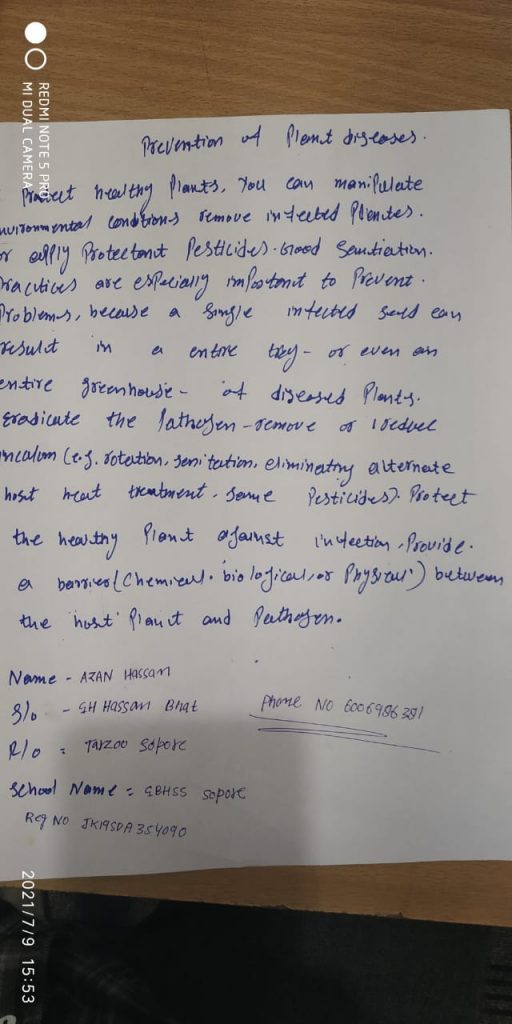 Prevention of Plant diseases.
Protect healthy Plants, You can manipulate
nvironmental conditions remove infected Plantes.
or apply Protectant Pesticides. Good Sanitiation.
ractices are especially important to Prevent.
Problems, because a single infected seed can
result in a entire tray - or even an
entire greenhouse - of diseased Plants.
eradicate the Pathogen - remove or reduce
inculum (e.g. rotation, sanitation, eliminating alternate
host heat treatment. Some Pesticides). Protect
the healthy Plant against infection. Provide.
a barrier (Chemical. biological, or Physical) between
the host Plant and Pathogen.
Name - AZAN HASSAN
S/o - GH Hassan Bhat
Phone NO 6006986381
R/o = Tarzoo Sopore
School Name = GBHSS Sopore
Reg NO JK19SDA354090
REDMI NOTE 5 PRO
MI DUAL CAMERA
2021/7/9 15:53